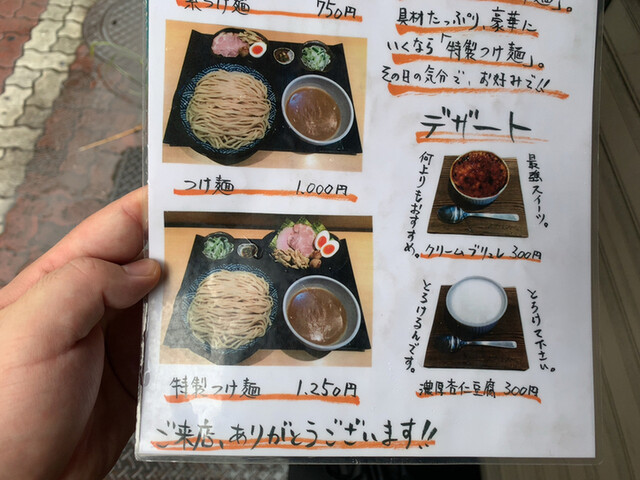 つけ麺 750円
つけ麺 1,000円
特製つけ麺 1,250円
具材たっぷり、豪華に
いくなら「特製つけ麺」。
その日の気分で、お好みで!!
デザート
最強スイーツ。
何よりもおすすめ。
クリームブリュレ 300円
とろけて下さい。
とろけるんです。
濃厚杏仁豆腐 300円
ご来店、ありがとうございます!!